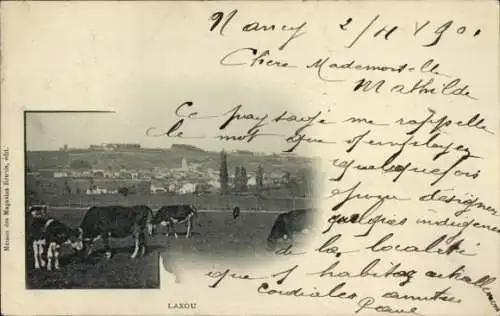 Nancy 2/11 90
Chère Mademoiselle
Mathilde
Ce paysage me rappelle
le mot que j'employais
quelquefois
pour désigner
quelques indigènes
de la localité
que j'habite actuellement
Cordiales amitiés
LAXOU
Maison des Magasins Réunis, édit.